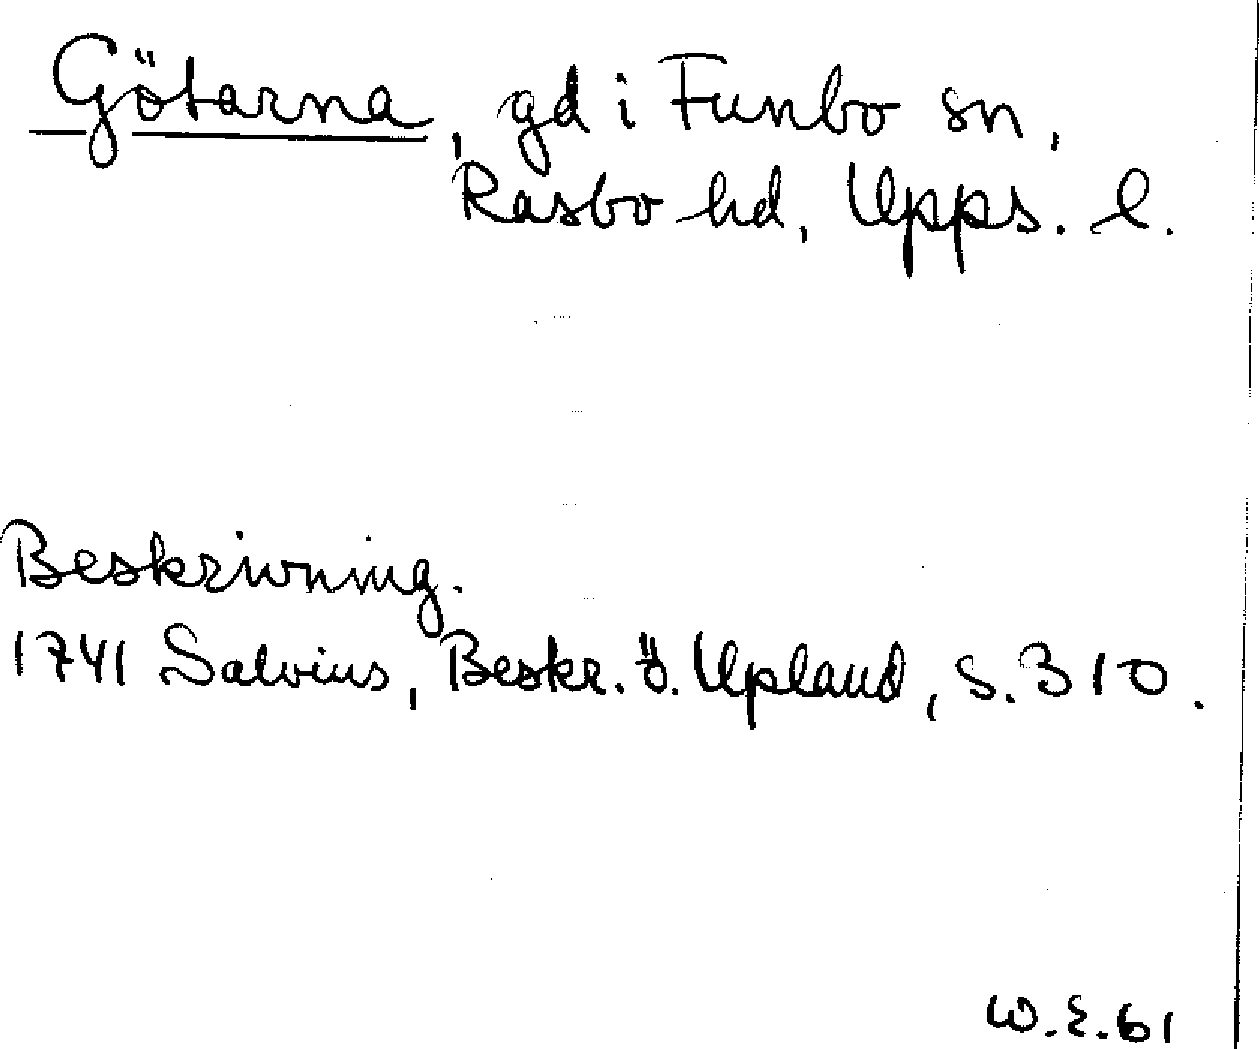 Götarna, gd i Funbo sn,
Rasbo hd, Upps. l.
Beskrivning.
1741 Salvius, Beskr. ö. Upland, s. 310.
W.E.61